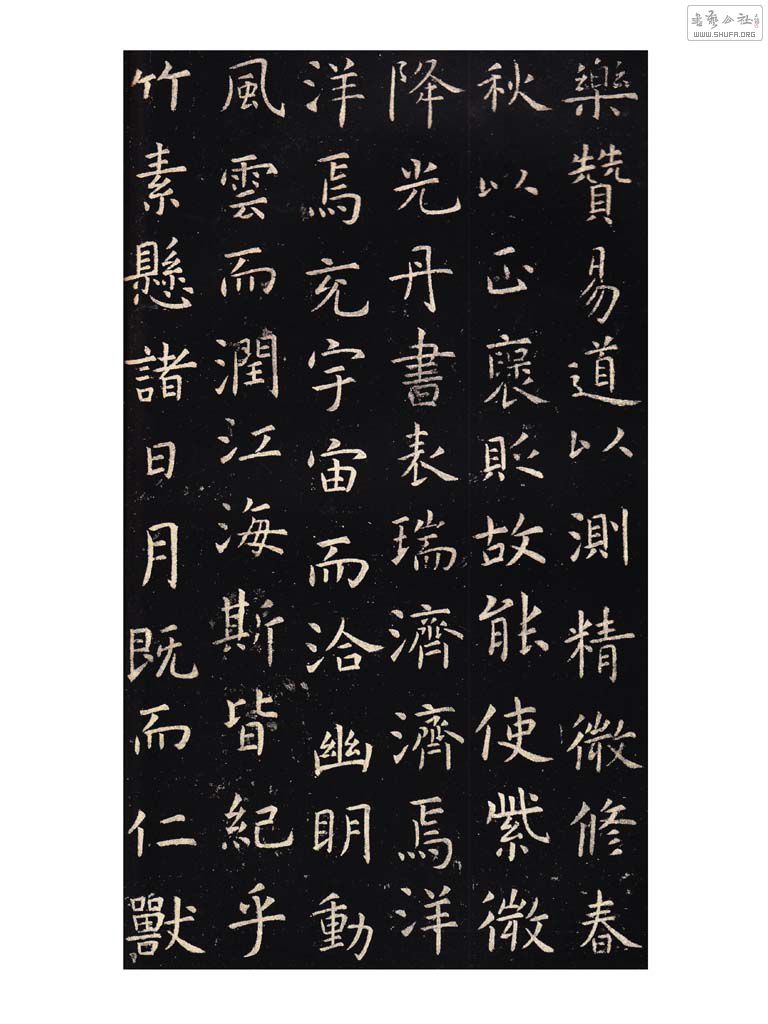 樂贊易道以測精微修春
秋以正褒貶故能使紫微
降光丹書表瑞濟濟焉洋
洋焉充宇宙而洽幽明動
風雲而潤江海斯皆紀乎
竹素懸諸日月既而仁獸
WWW.SHUFA.ORG